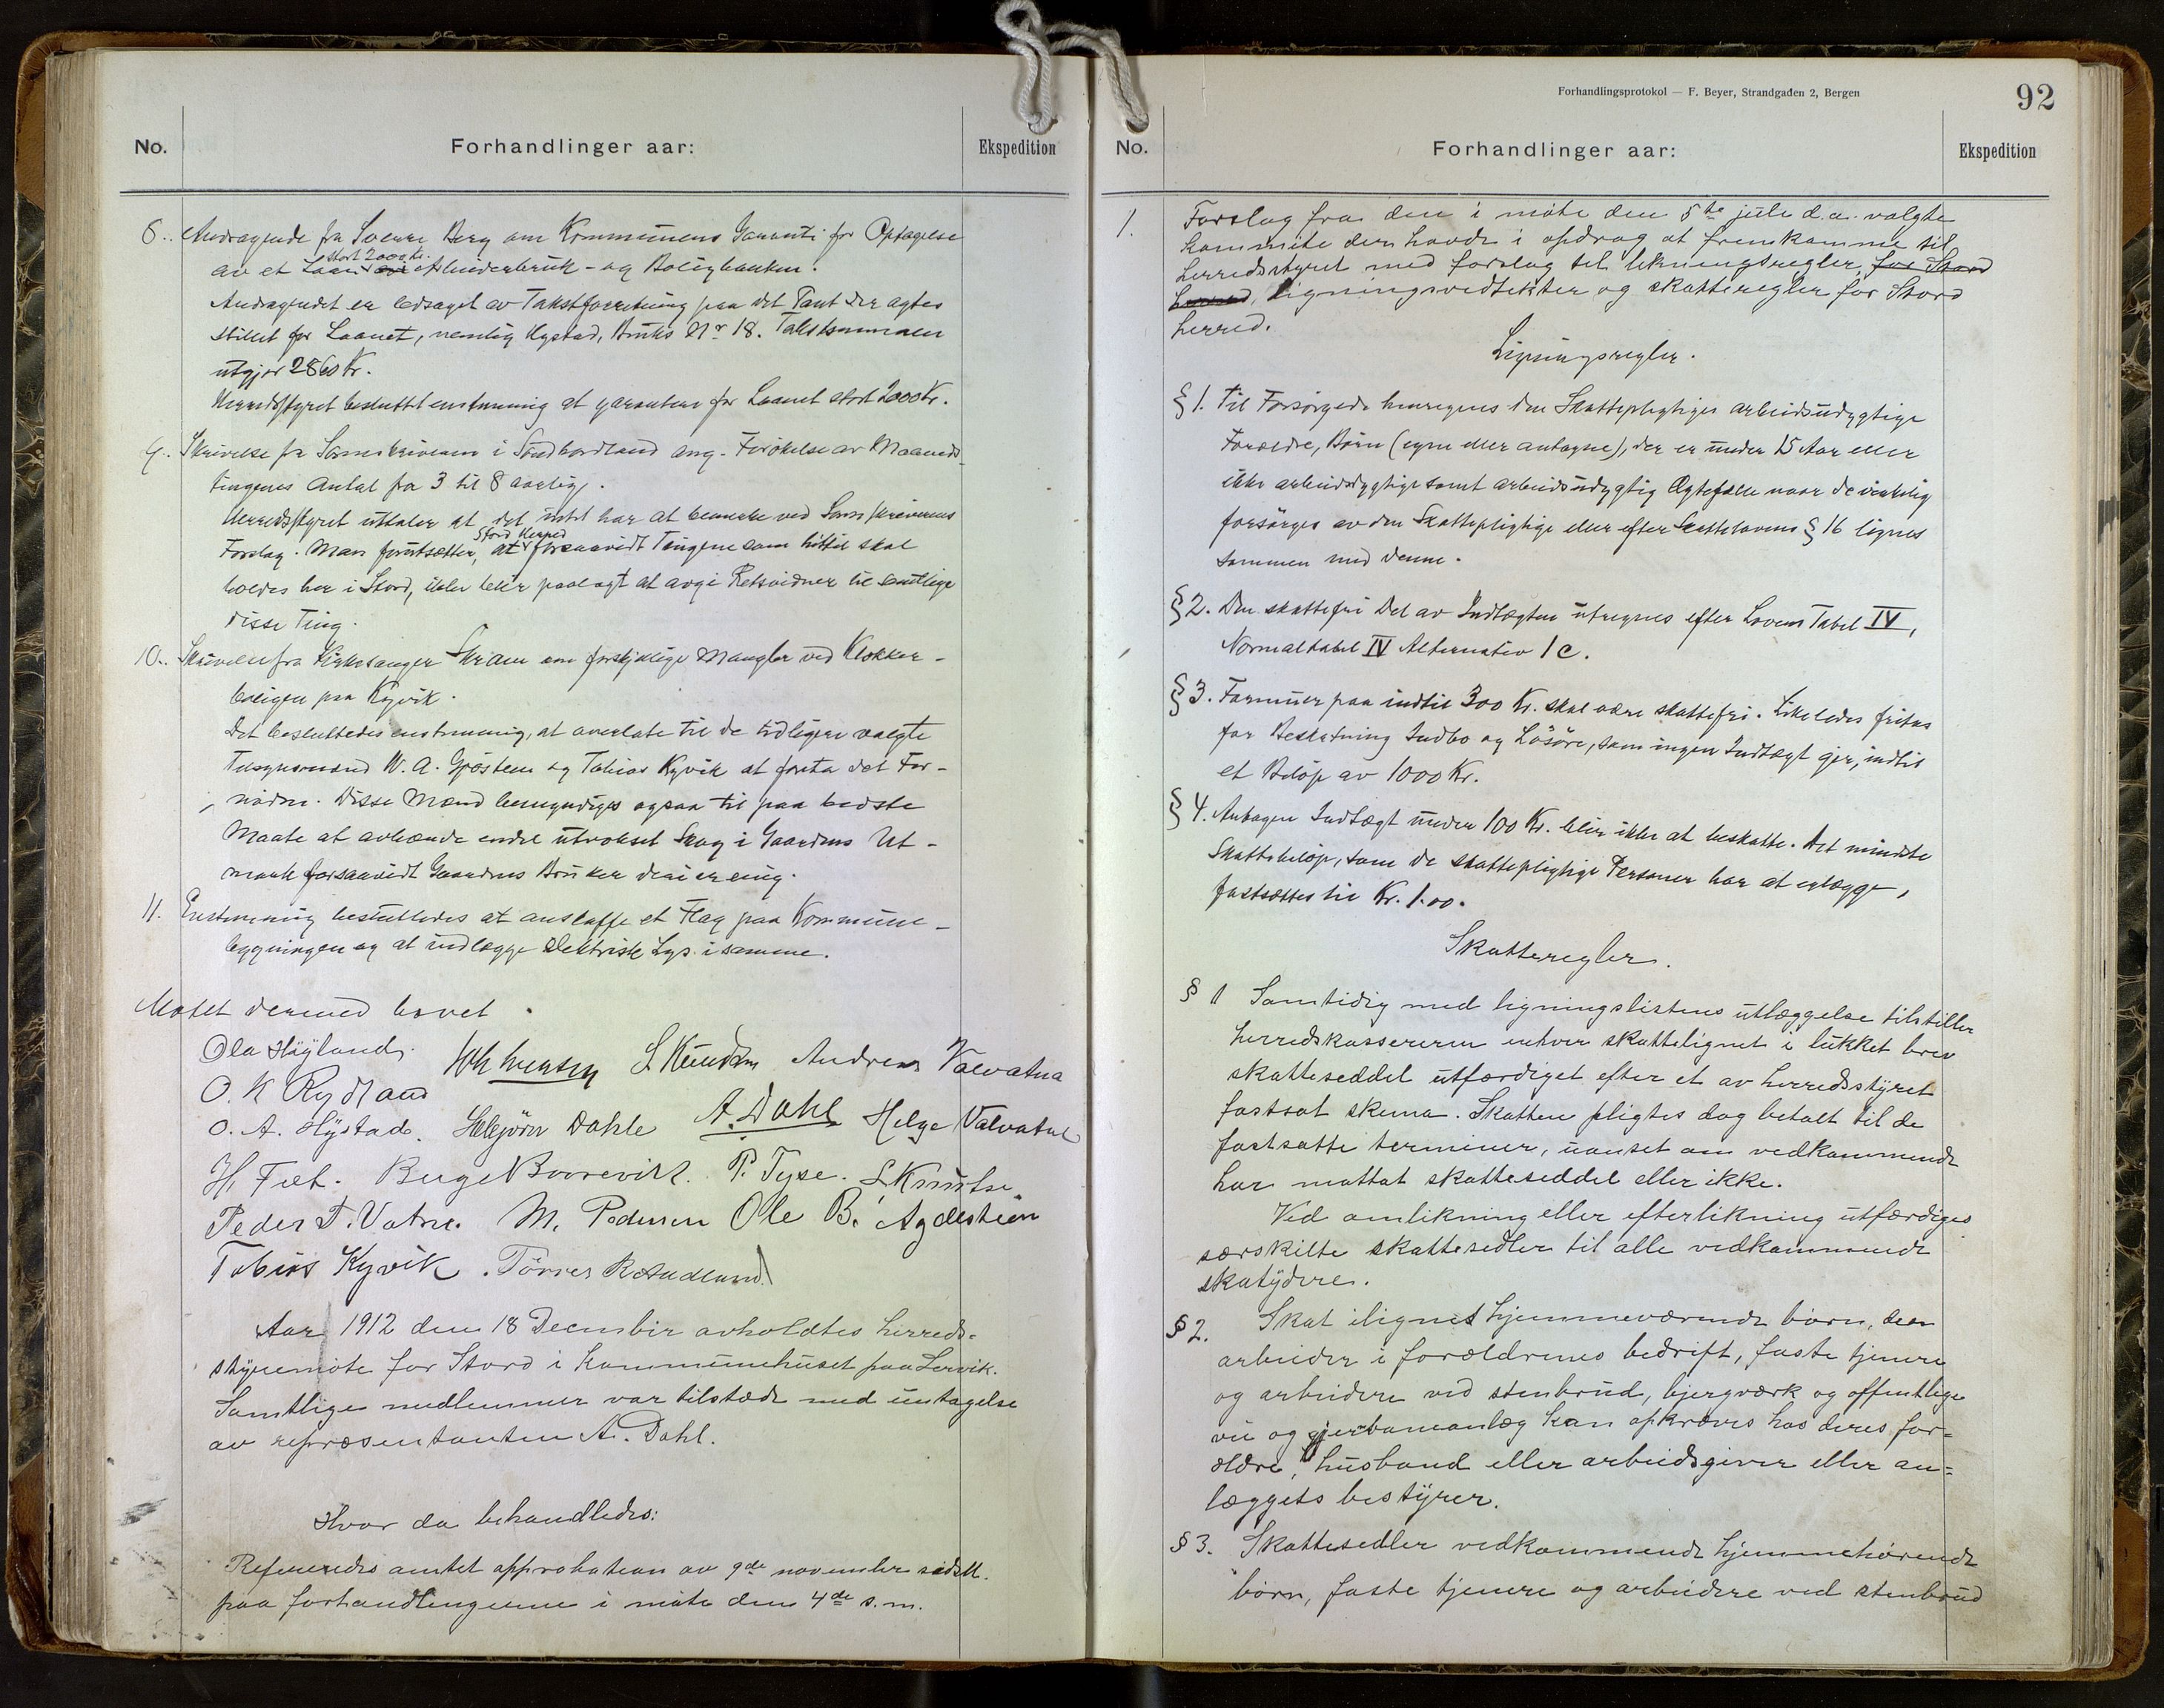 No.
Forhandlinger aar:
Ekspedition
8. Andragende fra Sverre Berg om Kommunens Garanti for Optagelse
av et Laan stort 2000 kr. Arbeiderbruk- og Boligbanken.
Andragendet er ledsaget av Takstforretning paa det Pant der agtes
stillet for Laanet, nemlig Hystad, Bruks Nr 18. Takstsummen
utgjør 2860 kr.
Herredsstyret besluttet enstemmig at garantere for Laanet stort 2000 Kr.
9. Skrivelse fra Sorenskriveren i Søndhordland ang. Forøkelse av Maaneds-
tingenes Antal fra 3 til 8 aarlig.
Herredsstyret uttaler at det intet har at bemerke ved Sorenskriverens
Forslag. Man forutsætter, at Stord Herred forsaavidt Tingene som hittil skal
holdes her i Stord, ikke blir paalagt at avgi Retsvidner til samtlige
disse Ting.
10. Skrivelse fra Kirkesanger Skram om forskjellige Mangler ved Klokker-
boligen paa Kyvik.
Det besluttedes enstemmig, at overlate til de tidligere valgte
Tilsynsmænd W. A. Gjøsteen og Tobias Kyvik at foreta det For-
nødne. Disse Mænd bemyndiges ogsaa til paa bedste
Maate at avhænde endel utvokset Skog i Gaardens Ut-
mark forsaavidt Gaardens Bruker deri er enig.
11. Enstemmig besluttedes at anskaffe et Flag paa Kommune-
bygningen og at indlægge elektrisk Lys i samme.
Møtet dermed hævet.
Ola Høyland.
Joh Svensen S Knutsen Andreas Valvatna
O. K Rydland
O. A. Hystad. Helgjörn Dahle A. Dahl Helge Valvatne
H. Fæt. Birge Borrevik. P. Tyse. S Knutse.
Peder T. Vatne. M. Pedersen Ole B. Agdesteen
Tobias Kyvik. Törres R Aadland
Aar 1912 den 18 December avholdtes herreds-
styremøte for Stord i kommunehuset paa Lervik.
Samtlige medlemmer var tilstæde med untagelse
av repræsentanten A. Dahl.
Hvor da behandledes:
Refereredes amtet approbation av 9de november sidstl.
paa forhandlingerne i møte den 4de s.m.
Forhandlingsprotokol — F. Beyer, Strandgaden 2, Bergen
92
No.
Forhandlinger aar:
Ekspedition
1. Forslag fra den i møte den 5te juli d.a. valgte
kommite der havde i opdrag at fremkomme til
herredsstyret med forslag til likningsregler, for Stord
herred, ligningsvedtekter og skatteregler for Stord
herred.
Ligningsregler.
§ 1. Til Forsørgede henregnes den Skattepligtiges arbeidsudygtige
Forældre, Børn (egne eller antagne), der er under 15 Aar eller
ikke arbeidsdygtige samt arbeidsudygtig Ægtefælle naar de virkelig
forsørges av den Skattepligtige eller efter Skattelovens § 16 lignes
sammen med denne.
§ 2. Den skattefri Del av Indtægten utregnes efter Lovens Tabel IV,
Normaltabel IV Alternativ 1 c.
§ 3. Formuer paa indtil 300 Kr. skal være skattefri. Likeledes fritas
for Beskatning Indbo og Løsøre, som ingen Indtægt gir, indtil
et Beløp av 1000 Kr.
§ 4. Antagen Indtægt under 100 Kr. blir ikke at beskatte. Det mindste
Skattebeløp, som de skattepligtige Personer har at erlægge,
fastsættes til Kr. 1.00.
Skatteregler.
§ 1 Samtidig med ligningslistens utlæggelse tilstiller
herredskassereren enhver skattelignet i lukket brev
skatteseddel utfærdiget efter et av herredsstyret
fastsat skema. Skatten pligtes dog betalt til de
fastsatte terminer, uanset om vedkommende
har mottat skatteseddel eller ikke.
Ved omlikning eller efterlikning utfærdiges
særskilte skattesedler til alle vedkommende
skatydere.
§ 2. Skat ilignet hjemmeværende børn, der
arbeider i forældrenes bedrift, faste tjenere
og arbeidere ved stenbrud, bjergværk og offentlige
vei og jernbaneanlæg kan opkræves hos deres for-
ældre, husbond eller arbeidsgiver eller an-
læggets bestyrer.
§ 3. Skattesedler vedkommende hjemmehørende
børn, faste tjenere og arbeidere ved stenbrud